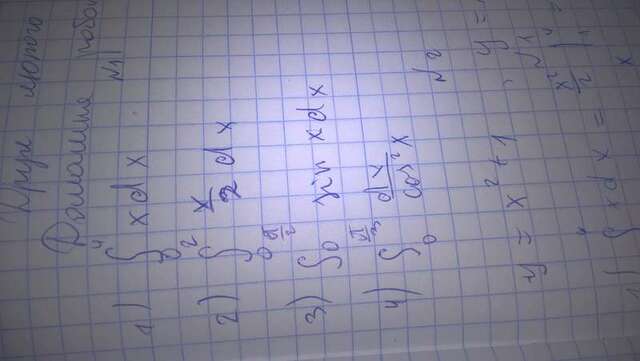 Друге лютого
Домашня робо
№1
1) ∫₀⁴ x d x
2) ∫₀² x/2 d x
3) ∫₀^(π/2) sin x d x
4) ∫₀^(π/3) dx/cos² x
№2
y = x² + 1, y =
№1
1) ∫⁴ x d x = x²/2 |⁴ =